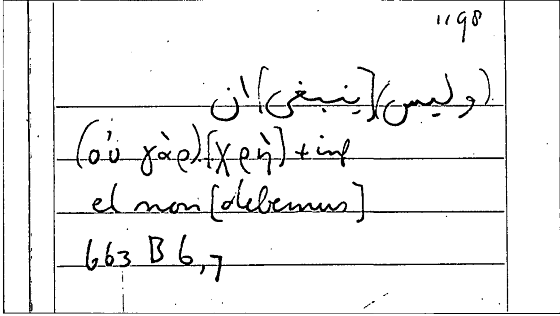 1198
(وليس)[ينبغى] ان
(οὐ γὰρ) [χρὴ] + inf
et non [debemus]
663 B 6,7